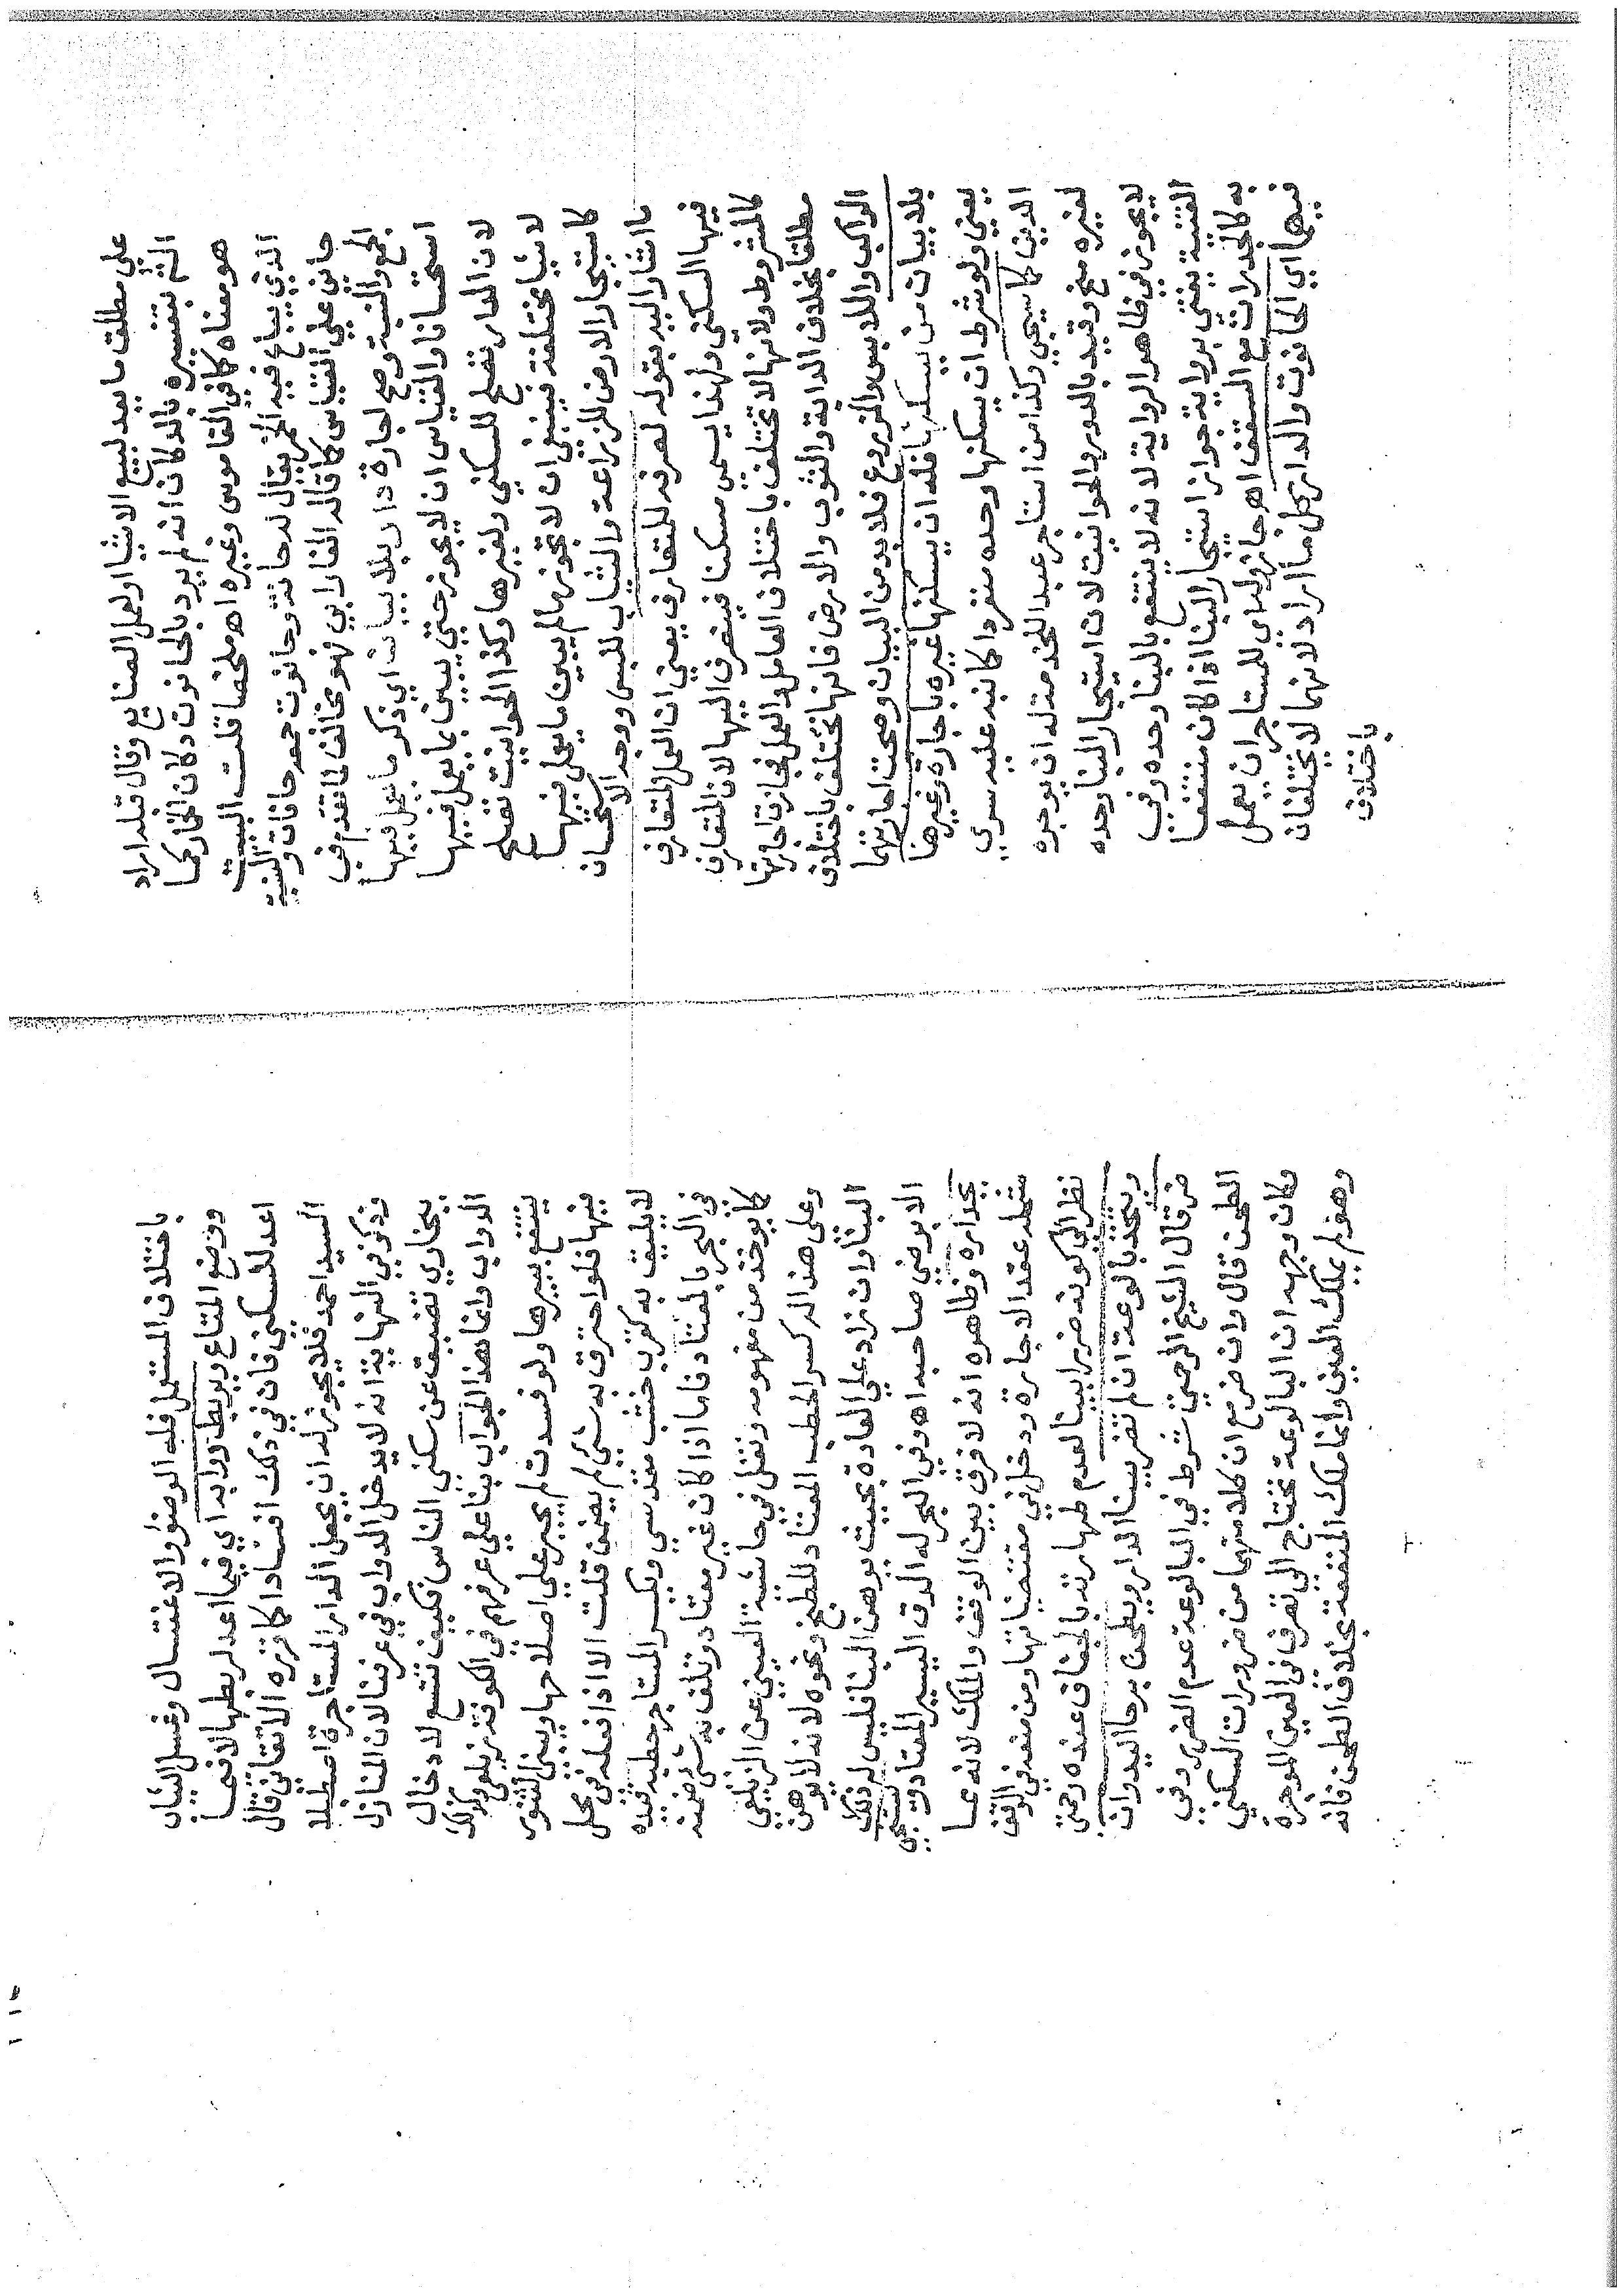 علي مطلق ما يعد لبيع الاشيا او لعمل الصنايع وقال قبله اراد
الش بتفسيره بالدكان انه لم يرد بالحانوت دكان الخمار كما
هو معناه كما في القاموس وغيره اه ملخصا قلت البيت
الذي يباع فيه الخمر يقال له حانة وحانوت جمعه حانات والنسبة
حاني علي القياس كما قاله الفارابي فهو مخالف لما تقدم في
الجمع والنسبة وصح اجارة دار بلا بيان اي ذكر ما يعمل فيها
استحسانا والقياس ان لا يجوز حتي يبين بما يعمل فيها
لان الدار تصلح للسكني ولغيرها وكذا الحوانيت تصلح
لاشيا مختلفة فينبغي ان لا تجوز ما لم يبين ما يعمل فيها
كاستيجار الارض للزراعة والثياب للبس ووجه الاستحسان
ما اشار اليه بقوله لصرفه للمتعارف يعني ان العمل المتعارف
فيها السكني ولهذا يسمي مسكنا فينصرف اليها لان المتعارف
كالمشروط ولانها لا تختلف باختلاف العامل والعمل فجازت اجارتها
مطلقا بخلاف الدابة والثوب والارض فانها تختلف باختلاف
الراكب واللابس والمزروع فلا بد من البيان وصحت اجارتهما
بلا بيان من يسكنها فله ان يسكنها غيره باجارة وغيرها
يعني ولو شرط ان يسكنها وحده منفردا كما نبه عليه سري
الدين كما سيجي وكذا من استاجر عبدا للخدمة له ان يوجره
لغيره منح وقيد بالدور والحوانيت لان استيجار البنا وحده
لا يجوز في ظاهر الرواية لانه لا ينتفع بالبنا وحده وفي
القنية يفتي برواية جواز استيجار البنا اذا كان منتفعا
به كالجدران مع السقف اهـ جازوله اي للمستاجر ان يعمل
فيهما اي الحانوت والدار كل ما اراد لانهما لا يختلفان
باختلاف
باختلاف المستعمل فله الوضؤ والاغتسال وغسل الثياب
ووضع المتاع ويربط دوابه اي فيما اعد لربطها لا فيما
اعد للسكني فان في ذلك افسادا كما قرره الاتقاني قال
السيد احمد فلا يجوز له ان يجعل الدار المستاجرة اصطبلا
وذكر في النهاية انه لا يدخل الدواب في عرفنا لان المنازل
ببخاري تضيق عن سكني الناس فكيف تتسع لادخال
الدواب وانما هذا الجواب بنا علي عرفهم في الكوفة زيلعي وكذلك
ينتفع ببيرها ولو فسدت لم يجبر علي اصلاحها ويبني التنور
فيها فلو احترق به شئ لم يضمن قلت الا اذا فعله في محل
لا يليق به كقرب خشب مقدسي ويكسر المستاجر حطبه قيده
في البحر بالمعتاد فاما اذا كان غير معتاد وتلف به شئ ضمنه
كما يوخذ من مفهومه ونقل في حاشية العيني عن الزيلعي
وعلي هذا له كسر الحطب المعتاد للطبخ ونحوه لانه لا يوهن
البنا وان زاد علي العادة بحيث يوهن البنا فليس له ذلك
الا برضي صاحبه اه وفي البحر له الدق اليسير المعتاد ويستنجي
بجداره وظاهره انه لا فرق بين الوقف والملك لانه مما
شمله عقد الاجارة ودخل في مقتضياتها ومن منعه في الوقف
نظر الي كونه ضررا بينا لعدم طهارته بالجفاف عنده رحمتي
ويتخذ بالوعة ان لم تضر بينا الدار ويطحن برحا اليد وان
ضر قال الشيخ الرحمتي شرط في البالوعة عدم الضرر وفي
الطحن قال وان ضر مع ان كلا منهما من ضرورات السكني
وكان وجهه ان البالوعة تحتاج الي تصرف في العين الموجرة
وهو لم يملك العين وانما ملك المنفعة بخلاف الطحن فانه